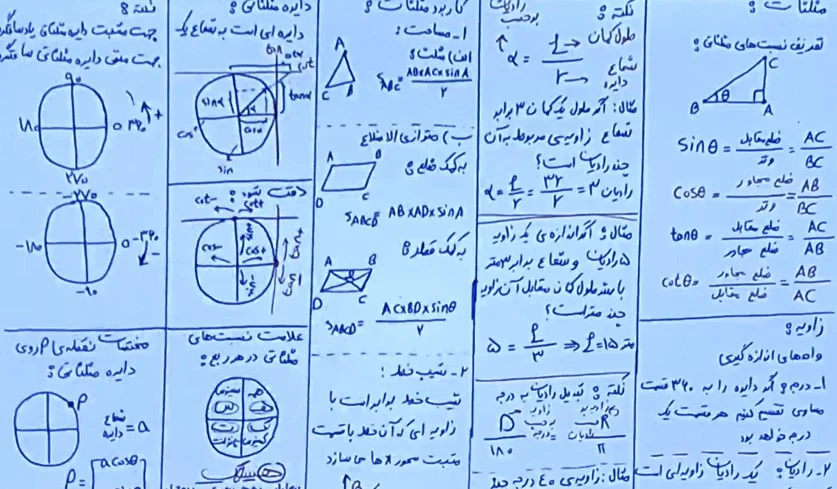 مثلثات :
تعریف نسبت‌های مثلثاتی :
C
B θ A
Sinθ = ضلع مقابل / وتر = AC / BC
Cosθ = ضلع مجاور / وتر = AB / BC
tanθ = ضلع مقابل / ضلع مجاور = AC / AB
Cotθ = ضلع مجاور / ضلع مقابل = AB / AC
زاویه :
واحدهای اندازه گیری
۱ـ درجه : اگر دایره را به ۳۶۰ قسمت
مساوی تقسیم کنیم هر قسمت یک
درجه خواهد بود
۲ـ رادیان : یک رادیان زاویه‌ای است
نکته :
رادیان
برحسب
طول کمان
α = l / r
شعاع
دایره
مثال : اگر طول یک کمان ۳ برابر
شعاع زاویه‌ی مربوط به آن
چند رادیان است؟
α = l / r = ۳r / r = ۳ رادیان
مثال : اگر اندازه‌ی یک زاویه
۵ رادیان و شعاع برابر ۳ متر
باشد طول کمان مقابل آن زاویه
چند متر است؟
۵ = l / ۳ ⇒ l = ۱۵ متر
نکته : تبدیل رادیان به درجه
D / ۱۸۰ = R / π
مثال : زاویه‌ی ۴۰ درجه چند
کاربرد مثلثات :
۱ـ مساحت :
الف) مثلث :
A
C B
S ABC = AB×AC×sinA / ۲
ب) متوازی الاضلاع
به کمک ضلع :
A B
D C
S ABCD = AB×AD×sinA
به کمک قطر :
A B
D C
S ABCD = AC×BD×sinθ / ۲
۲ـ شیب خط :
شیب خط برابر است با
زاویه ای که آن خط با سمت
مثبت محور xها می سازد
دایره مثلثاتی :
دایره ای است به شعاع یک
tan
cot
sinα
α
cosα
tanα
cos
sin
دقت شود :
cot- cot+
sin+
cos- cos+
sin-
tan+
tan-
علامت نسبت‌های
مثلثاتی در هر ربع :
نکته :
جهت مثبت دایره مثلثاتی پادساعتگرد
جهت منفی دایره مثلثاتی ساعتگرد
۹۰
۱۸۰ ۰ ۳۶۰ +
۲۷۰
-۲۷۰
-۱۸۰ ۰ -۳۶۰ -
-۹۰
مختصات نقطه‌ی P روی
دایره مثلثاتی :
P
شعاع دایره = a
P = [ a cosθ